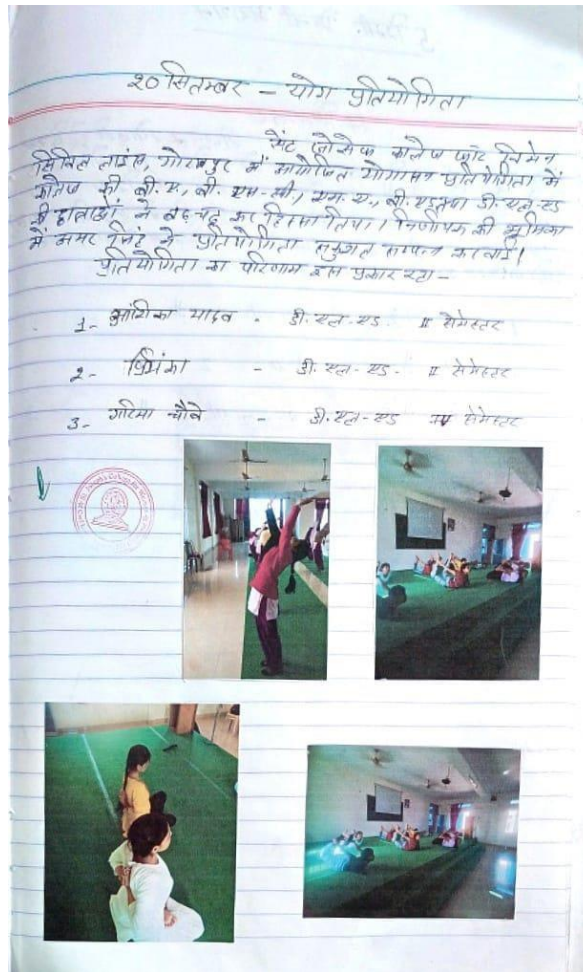 २० सितम्बर - योग प्रतियोगिता
सेंट जोसेफ कालेज फॉर विमेन
सिविल लाइंस, गोरखपुर में आयोजित योगासन प्रतियोगिता में
कॉलेज की बी.ए., बी. एस-सी., एम.ए., बी.एड तथा डी.एल.एड
की छात्राओं ने बढ़-चढ़ कर हिस्सा लिया। निर्णायक की भूमिका
में अमर सिंह ने प्रतियोगिता सम्पन्न करवाई।
प्रतियोगिता का परिणाम इस प्रकार रहा -
1- आंशिका यादव - डी. एल. एड. II सेमेस्टर
2- प्रियंका - डी. एल. एड. II सेमेस्टर
3- गरिमा चौबे - डी. एल. एड सेमेस्टर